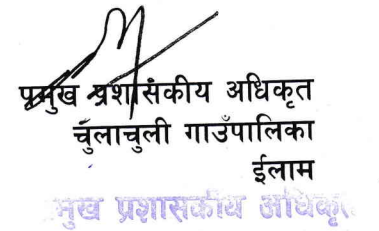 प्रमुख प्रशासकीय अधिकृत
चुलाचुली गाउँपालिका
ईलाम
प्रमुख प्रशासकीय अधिकृत